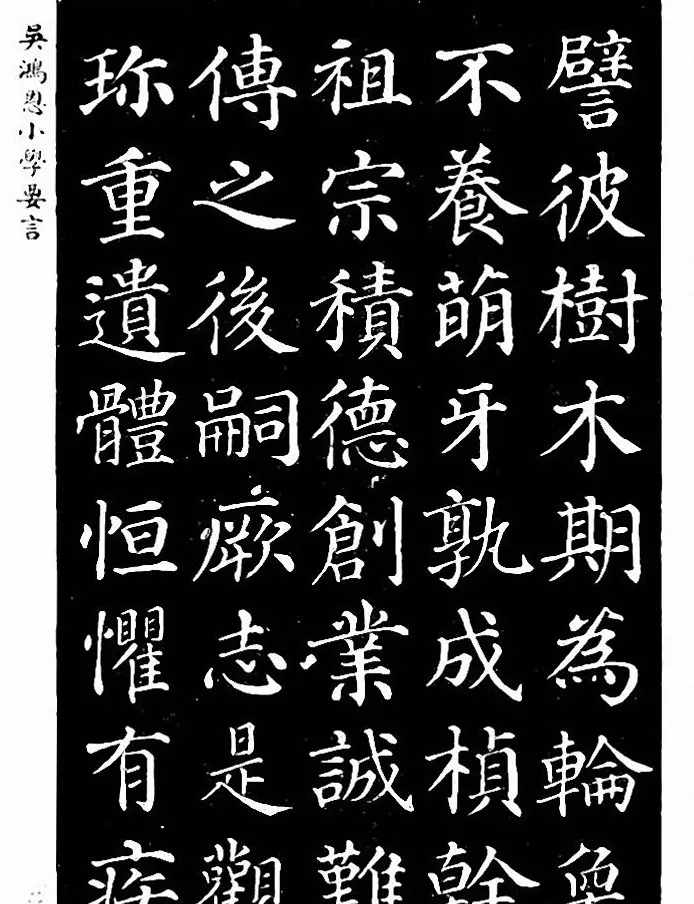 譬彼樹木期為輪奐
不養萌牙孰成楨幹
祖宗積德創業誠難
傳之後嗣瘚志是觀
珎重遺體恒懼有疾
吳鴻恩小學要言